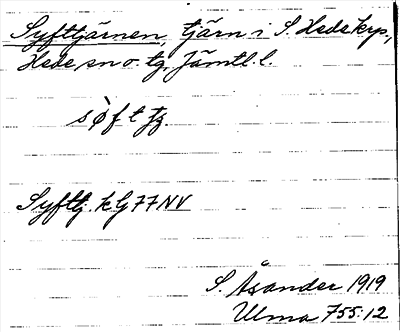 Syfttjärnen, tjärn i S. Hede krp.,
Hede sn o. tg. Jämtl. l.
sø̀ftfg.
Syfttj. kG 77 NV
S. Åsander 1919
Ulma 755:12